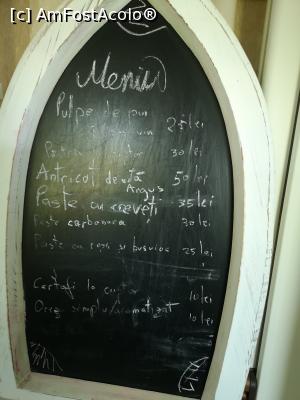 [c] AmFostAcolo®
Meniu
Pulpe de pui
vin 25 lei
30 lei
Antricot de vită 50 lei
Angus
Paste cu creveți 35 lei
Paste carbonara 30 lei
Paste cu roșii și busuioc 25 lei
Cartofi la cuptor 10 lei
Orez simplu/aromatizat 10 lei